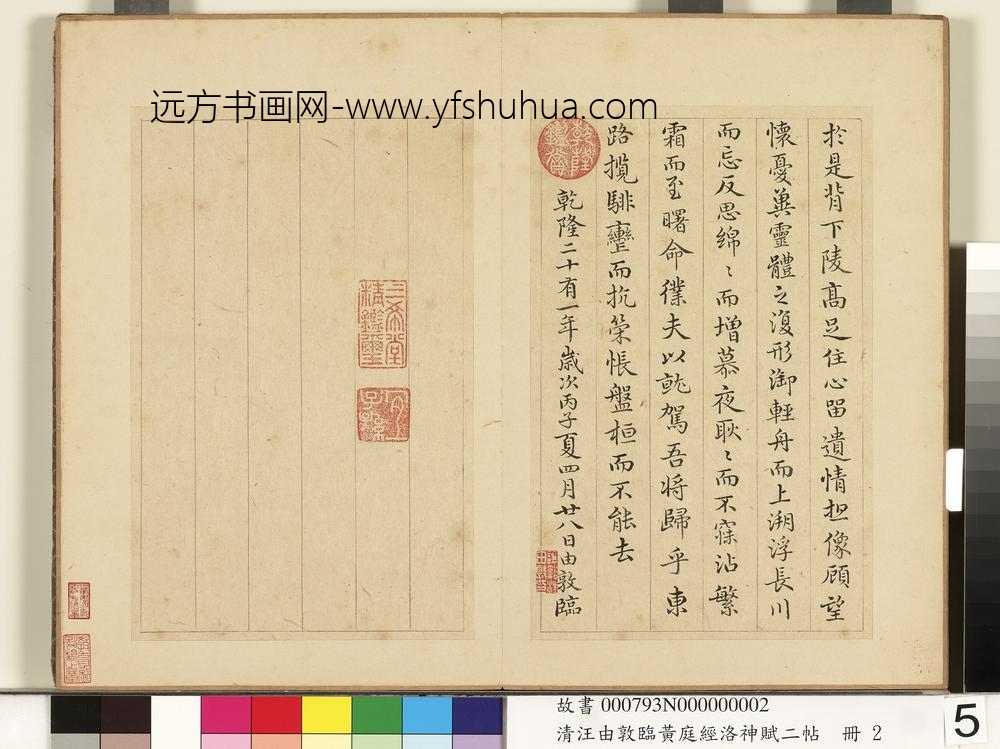 远方书画网-www.yfshuhua.com
於是背下陵高足住心留遺情想像顧望
懷憂冀靈體之復形御輕舟而上溯浮長川
而忘反思綿〻而增慕夜耿〻而不寐沾繁
霜而至曙命僕夫以就駕吾將歸乎東
路攬騑轡而抗策悵盤桓而不能去
乾隆二十有一年歲次丙子夏四月廿八日由敦臨
乾隆鑑賞
三希堂精鑑璽
宜子孫
故書 000793N000000002
清汪由敦臨黃庭經洛神賦二帖 冊 2
5